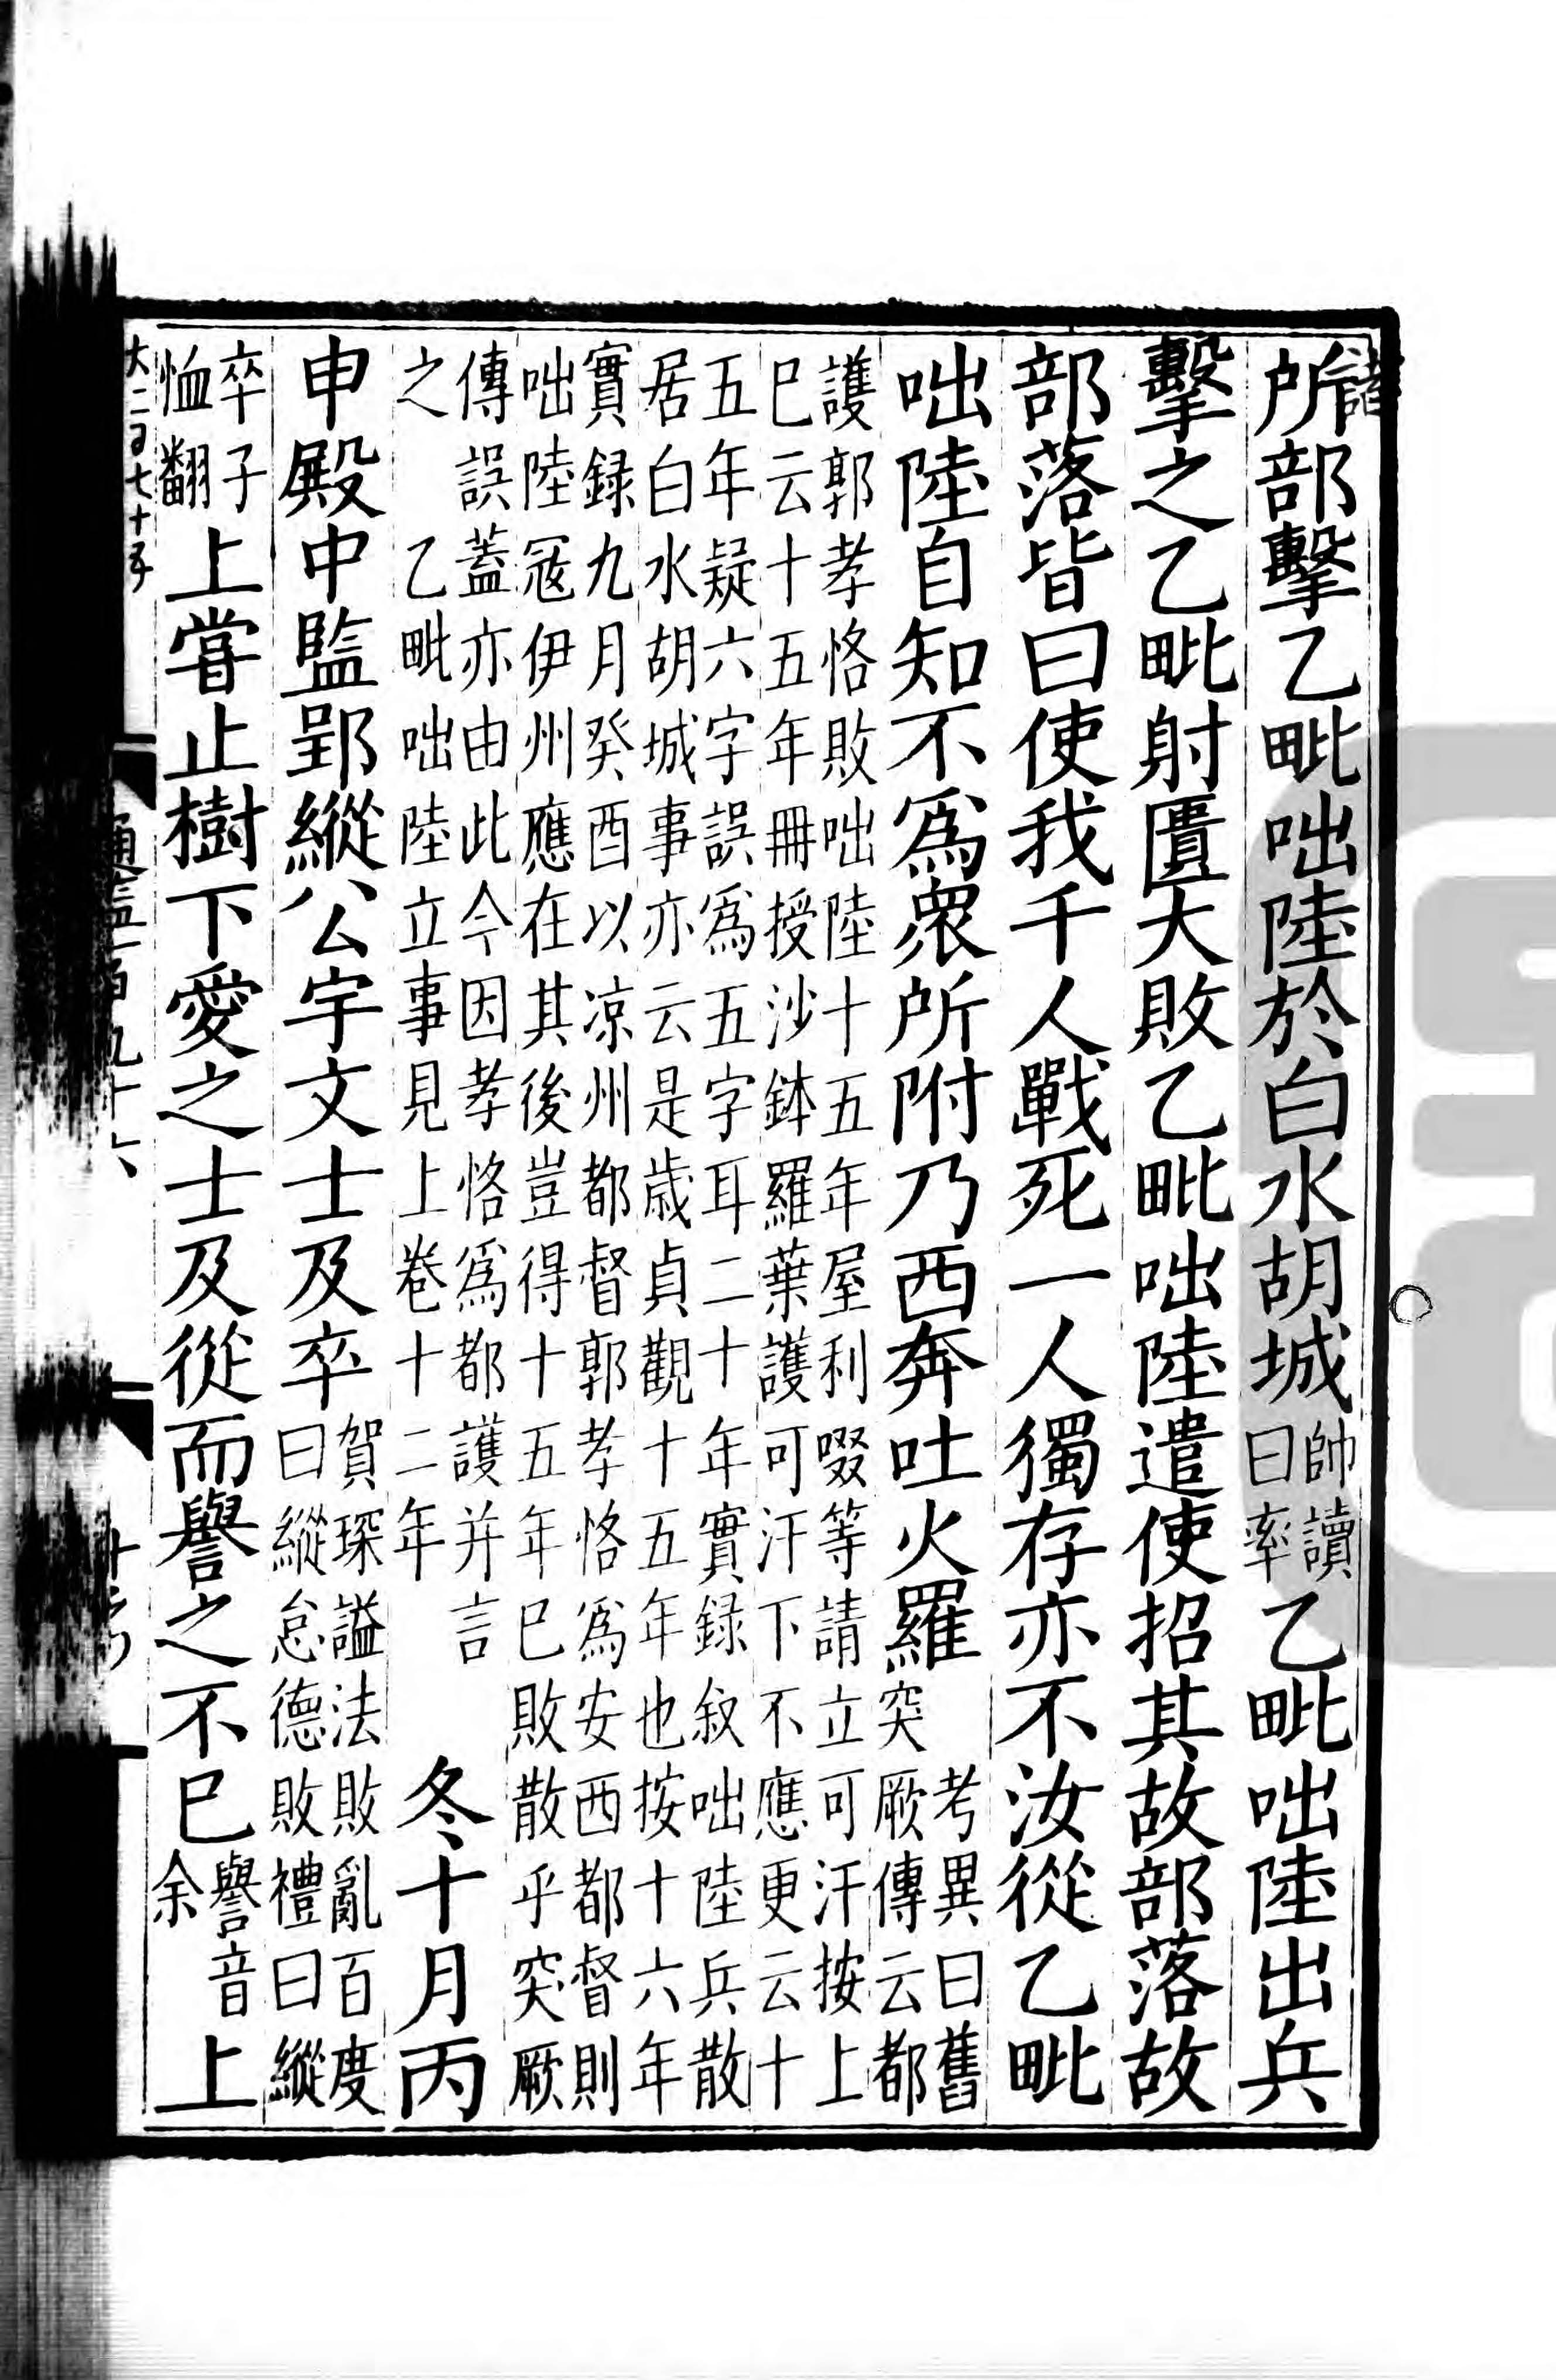 所部擊乙毗咄陸於白水胡城帥讀曰率乙毗咄陸出兵
擊之乙毗射匱大敗乙毗咄陸遣使招其故部落故
部落皆曰使我千人戰死一人獨存亦不汝從乙毗
咄陸自知不爲衆所附乃西奔吐火羅考異曰舊突厥傳云都
護郭孝恪敗咄陸十五年屋利啜等請立可汗按上
巳云十五年冊授沙鉢羅葉護可汗下不應更云十
五年疑六字誤爲五字耳二十年實録叙咄陸兵散
居白水胡城事亦云是歳貞觀十五年也按十六年
實録九月癸酉以凉州都督郭孝恪爲安西都督則
咄陸冦伊州應在其後豈得十五年巳敗散乎突厥
傳誤蓋亦由此今因孝恪爲都護并言
之乙毗咄陸立事見上卷十二年冬十月丙
申殿中監郢縱公宇文士及卒賀琛謚法敗亂百度曰縱怠德敗禮曰縱
卒子恤翻上嘗止樹下愛之士及從而譽之不巳譽音余上